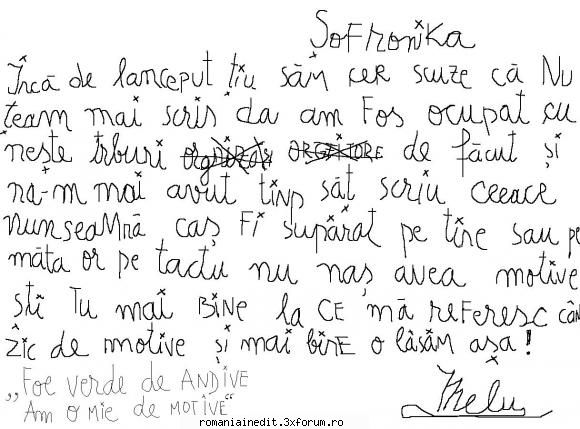 Sofronika
Încă de lanceput țiu săm cer scuze că Nu
team mai scris da am Fos ocupat cu
nește trburi de făcut și
na-m mai avut timp săt scriu ceeace
nunseaMnă caș Fi supărat pe tine sau pe
măta or pe tactu nu naș avea motive
stii Tu mai BiNe la CE mă reFeresc cân
zic de motive și mai biNE o lăsăm așa!
„Foe verde de ANDIVE
Am o Mie de MOTIVE"
Melu
romaniainedit.3xforum.ro